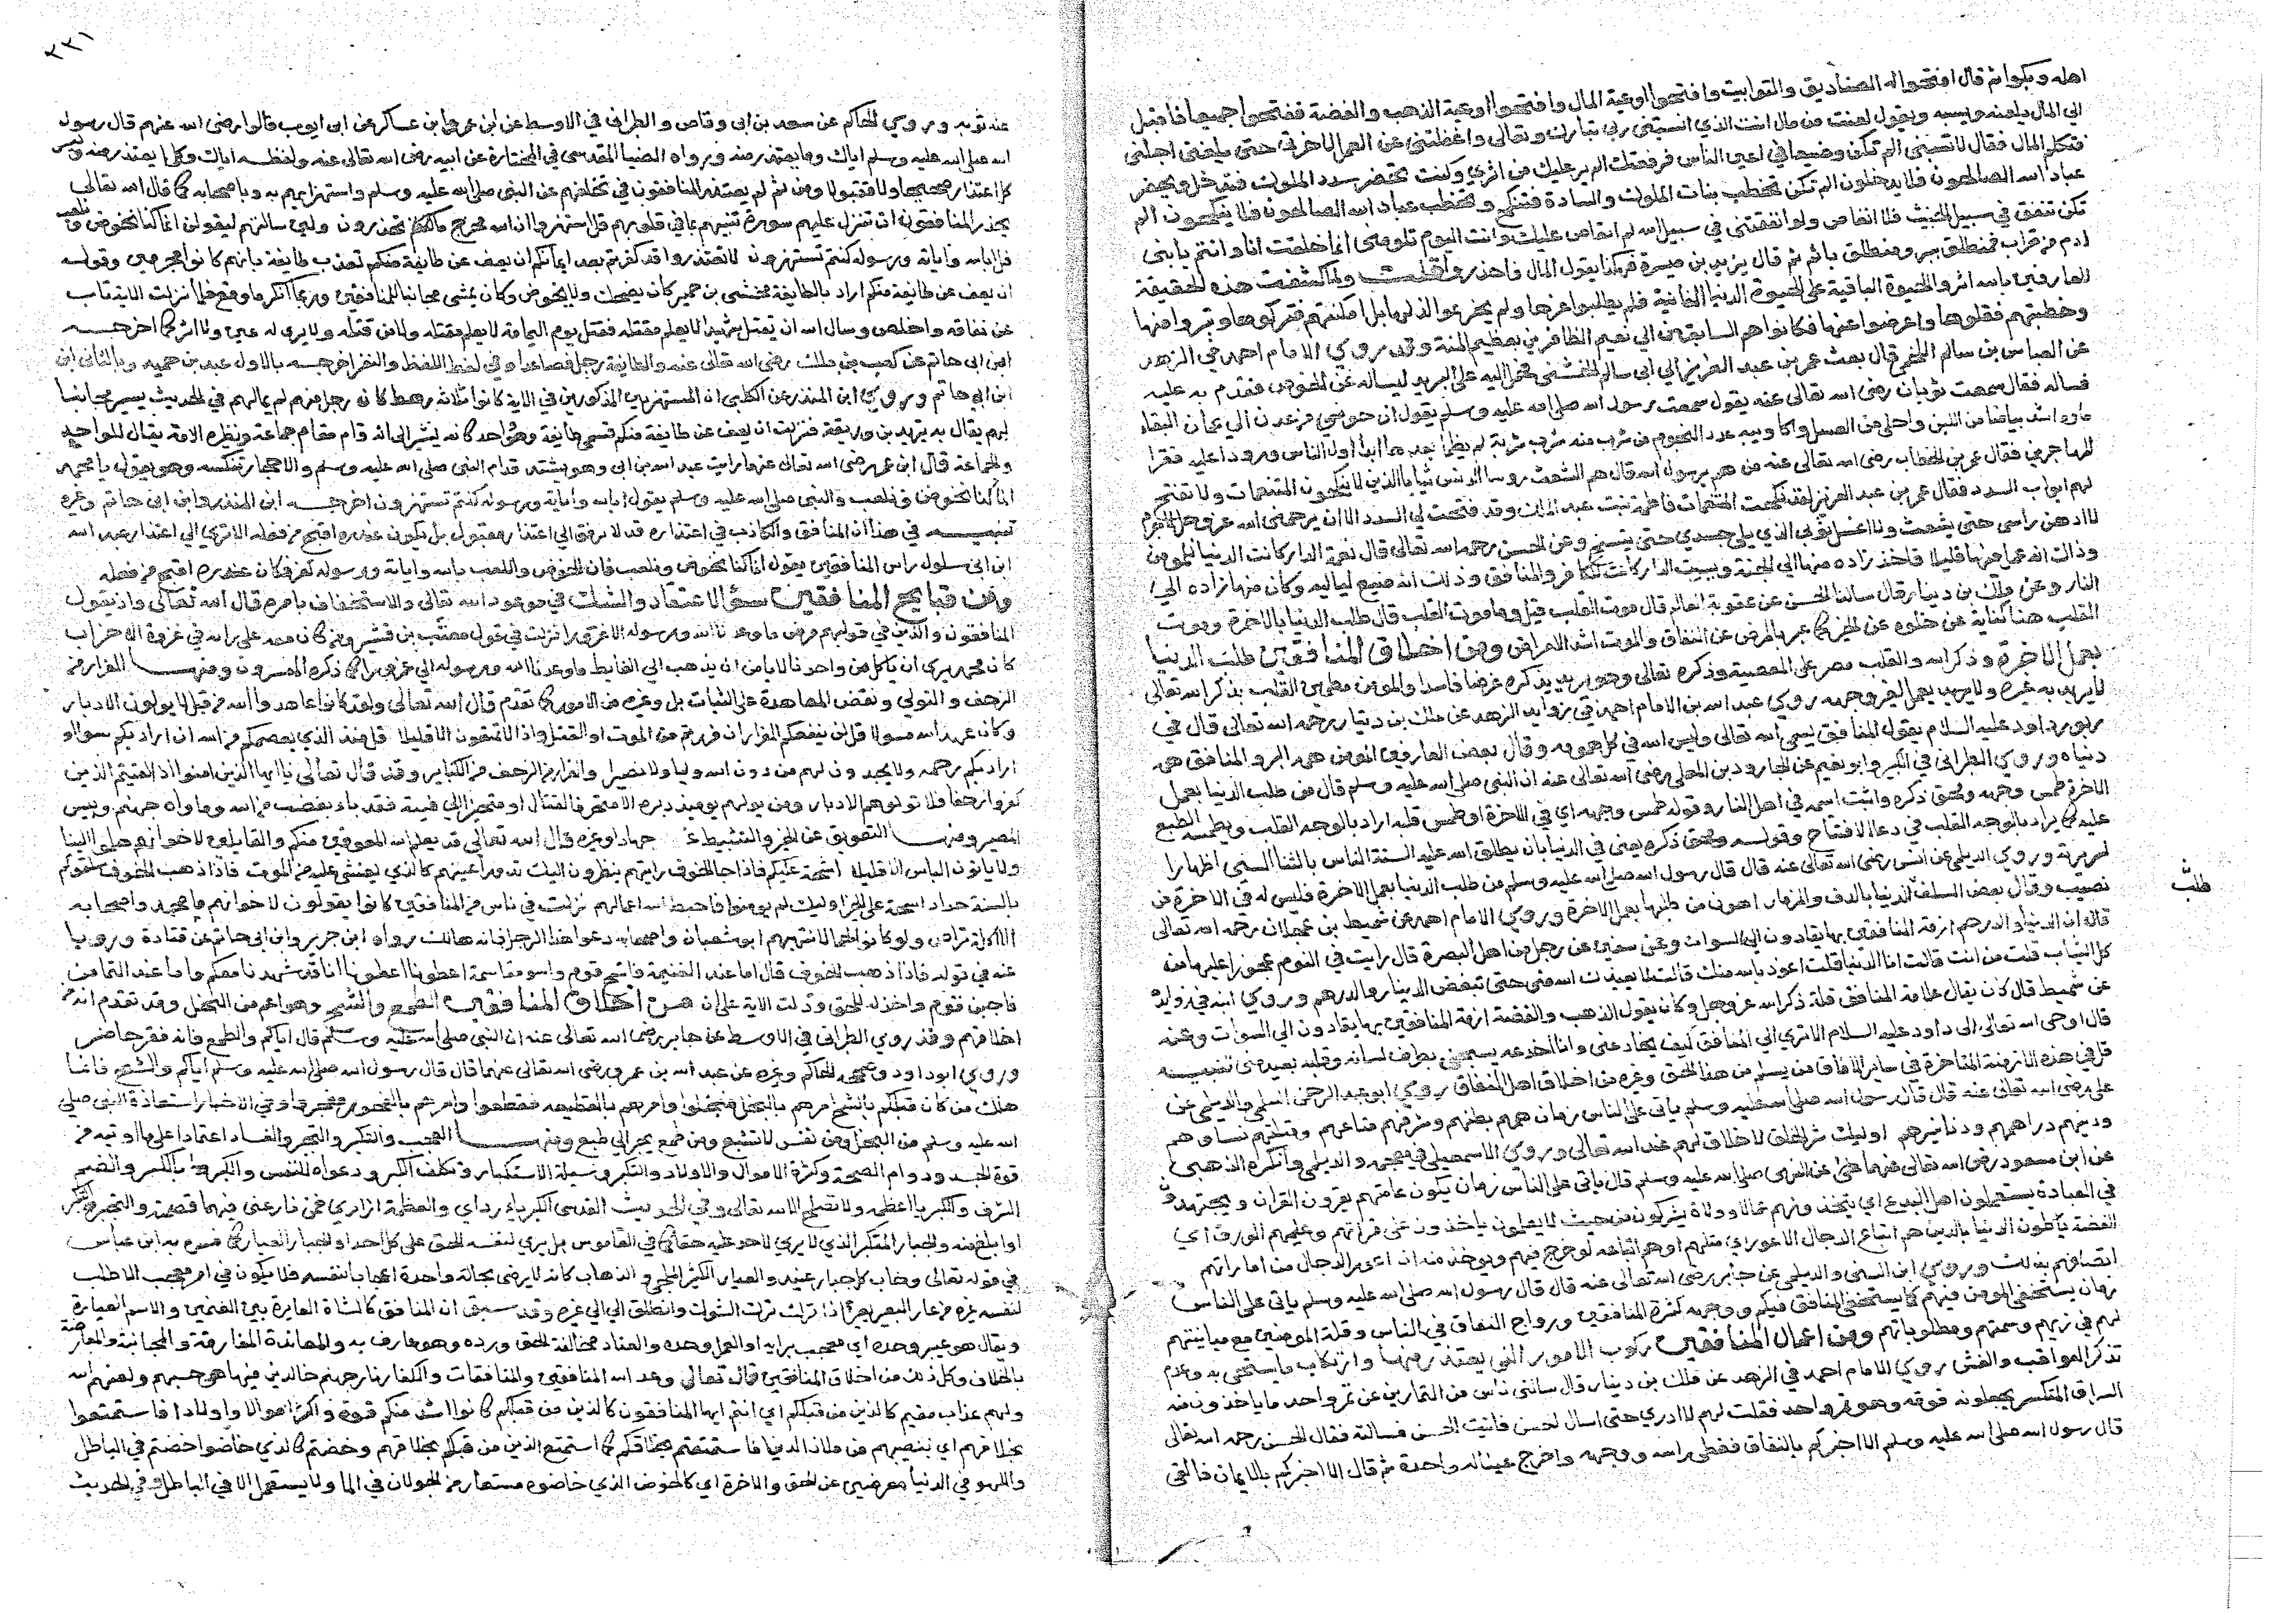 اهله وبكوا ثم قال افتحوا له الصناديق والتوابيت وافتحوا اوعية المال وافتحوا اوعية الذهب والفضة ففتحوا جميعا فاقبل
الى المال يلعنه ويسبه ويقول لعنت من مال انت الذي انسيتني ربي تبارك وتعالى واغفلتني عن العمل لاخرتي حتى بلغني اجلي
فتكلم المال فقال لا تسبني الم تكن وضيعا في اعين الناس فرفعتك الم ير عليك من اثري وكنت تحضر سدد الملوك فتدخل ويحضر
عباد الله الصالحون فلا يدخلون الم تكن تخطب بنات الملوك والسادة فتنكح وتخطب عباد الله الصالحون فلا ينكحون الم
تكن تنفق في سبيل الخبث فلا اتعاص ولو انفقتني في سبيل الله لم اتعاص عليك وانت اليوم تلومني انما خلقت انا وانتم يا بني
ادم من تراب فمنطلق ببر ومنطلق باثم ثم قال يزيد بن ميسرة فهكذا يقول المال فاحذروا قلت ولما كشفت هذه الحقيقة
للعارفين بالله اثروا الحيوة الباقية على الحيوة الدنيا الفانية فلم يطلبوا عزها ولم يجزعوا لذلها بل امكنتهم فتركوها وتبروا منها
وخطبتهم فقلوها واعرضوا عنها فكانوا هم السابقين الى نعيم الظافرين بعظيم المنة وقد روي الامام احمد في الزهد
عن العباس بن سالم اللخمي قال بعث عمر بن عبد العزيز الى ابي سالم الحبشي فحمل اليه على البريد ليساله عن الحوض فقدم به عليه
فساله فقال سمعت ثوبان رضى الله تعالى عنه يقول سمعت رسول الله صلى الله عليه وسلم يقول ان حوضي من عدن الى عمان البلقاء
ماوه اشد بياضا من اللبن واحلى من العسل واكاويبه عدد النجوم من شرب منه شربة لم يظما بعدها ابدا اول الناس ورودا عليه فقرا
المهاجرين فقال عمر بن الخطاب رضى الله تعالى عنه من هم يرسول الله قال هم الشعث روسا الدنس ثيابا الذين لا ينكحون المتنعمات ولا تفتح
لهم ابواب السدد فقال عمر بن عبد العزيز لقد نكحت المتنعمات فاطمة بنت عبد الملك وقد فتحت لي السدد الا ان يرحمني الله عز وجل لا جرم
لا ادهن راسي حتى يشعث ولا اغسل ثوبي الذي يلي جسدي حتى يتسخ وعن الحسن رحمه الله تعالى قال نعمة الدار كانت الدنيا للمومن
وذلك انه عمل فيها قليلا فاخذ زاده منها الى الجنة وبيست الدار كانت للكافر والمنافق وذلك انه ضيع لياليه وكان منها زاده الى
النار وعن ملك بن دينار قال سالنا الحسن عن عقوبة العالم قال موت القلب قيل وما موت القلب قال طلب الدنيا بالاخرة وموت
القلب هنا كناية عن خلوه عن الخير كما عبر بالمرض عن النفاق والموت اشد الامراض ومن اخلاق المنافقين طلب الدنيا
بعمل الاخرة وذكر الله والقلب مصر على المعصية وذكره تعالى وهو يريد يذكره غرضا فاسدا والمومن مطمين القلب بذكر الله تعالى
لا يريد به غيره ولا يريد بعمل الغير وجهه روي عبد الله بن الامام احمد في زوايد الزهد عن ملك بن دينار رحمه الله تعالى قال في
زبور داود عليه السلام يقول المنافق يسمى الله تعالى وليس الله في كل همومه وقال بعض العارفين المومن همه البر والمنافق همه
دنياه وروي الطبراني في الكبير وابو نعيم عن الجارود بن المعلى رضى الله تعالى عنه ان النبي صلى الله عليه وسلم قال من طلب الدنيا بعمل
الاخرة طمس وجهه ومحق ذكره واثبت اسمه في اهل النار وقوله طمس وجهه اي في الاخرة او طمس قلبه اراد بالوجه القلب ويطمسه الطبع
عليه كما يراد بالوجه القلب في دعا الافتتاح وقوله ومحق ذكره يعني في الدنيا بان يطلق الله عليه السنة الناس بالثنا السيى اظهارا
لسريرته وروي الديلمي عن انس رضى الله تعالى عنه قال قال رسول الله صلى الله عليه وسلم من طلب الدنيا بعمل الاخرة فليس له في الاخرة من
نصيب وقال بعض السلف الدنيا بالدف والمزمار اهون من طلبها بعمل الاخرة وروي الامام احمد عن شميط بن عجلان رحمه الله تعالى
قال ان الدينار والدرهم ازمة المنافقين بها يقادون الى السوات وعن سفين عن رجل من اهل البصرة قال رايت في النوم عجوزا عليها من
كل الثياب قلت من انت قالت انا الدنيا قلت اعوذ بالله منك قالت لا يعيذك الله مني حتى تبغض الدينار والدرهم وروي ابنه في زوايده
عن شميط قال كان يقال علامة المنافق قلة ذكر الله عز وجل وكان يقول الذهب والفضة ازمة المنافقين بها يقادون الى السوات وعنه
قال اوحى الله تعالى الى داود عليه السلام الا ترى الى المنافق كيف يخادعني وانا اخدعه يسبحني بطرف لسانه وقلبه بعيد مني تنبيه
قل في هذه الازمنة المتاخرة في ساير الافاق من يسلم من هذا الخلق وغيره من اخلاق اهل النفاق روي ابو عبد الرحمن السلمي والديلمي عن
علي رضى الله تعالى عنه قال قال رسول الله صلى الله عليه وسلم ياتي على الناس زمان همهم بطونهم وشرفهم متاعهم وقبلتهم نساوهم
ودينهم دراهمهم ودنانيرهم اوليك شر الخلق لا خلاق لهم عند الله تعالى وروي الاسمعيلي في معجمه والديلمي وانكره الذهبي
عن ابن مسعود رضى الله تعالى عنه عن النبي صلى الله عليه وسلم قال ياتي على الناس زمان يكون عامتهم يقرون القران ويجتهدون
في العبادة يشتغلون اهل البدع اي يتخذونهم عمالا وولاة يشركون من حيث لا يعلمون ياخذون على قراتهم وعلمهم الورق اي
الفضة ياكلون الدنيا بالدين هم اتباع الدجال الاعور اي مثلهم او هم اتباعه لو خرج فيهم ويوخذ منه ان اعور الدجال من اماراتهم
اتصافهم بذلك وروي ابن السني والديلمي عن جابر رضى الله تعالى عنه قال قال رسول الله صلى الله عليه وسلم ياتي على الناس
زمان يستخفي المومن فيهم كما يستخفي المنافق فيكم ووجهه كثرة المنافقين ورواج النفاق في الناس وقلة المومنين مع مباينتهم
لهم في زيهم وسمتهم ومطلوباتهم ومن اعمال المنافقين ركوب الامور التي يعتذر منها وارتكاب ما يستحى به وعدم
تذكر العواقب والغش روي الامام احمد في الزهد عن ملك بن دينار قال سالني ناس من التمارين عن تمر واحد ما ياخذون منه
السراق المتكسر يجعلونه فوقه وهو تمر واحد فقلت لهم لا ادري حتى اسال لحسن فاتيت الحسن فسالته فقال الحسن رحمه الله تعالى
قال رسول الله صلى الله عليه وسلم الا اخبركم بالنفاق فغطى راسه ووجهه واخرج عيناله واحدة ثم قال الا اخبركم بالايمان فالقى
طلب
٣٣١
عنه ثوبه وروي الحاكم عن سعد بن ابى وقاص والطبراني في الاوسط عن ابن عمر وابن عساكر عن ابى ايوب قالوا رضى الله عنهم قال رسول
الله صلى الله عليه وسلم اياك وما يعتذر منه ورواه الضيا المقدسي في المختارة عن ابيه رضى الله تعالى عنه ولفظه اياك وكل ما يعتذر منه وليس
كل اعتذار صحيحا ولا مقبولا ومن ثم لم يعتذر المنافقون في تخلفهم عن النبى صلى الله عليه وسلم واستهزايهم به وباصحابه كما قال الله تعالى
يحذر المنافقون ان تنزل عليهم سورة تنبيهم بما في قلوبهم قل استهزوا ان الله مخرج ما تحذرون ولين سالتهم ليقولن انما كنا نخوض ونلعب
قل ابالله واياته ورسوله كنتم تستهزون لا تعتذروا قد كفرتم بعد ايمانكم ان يعف عن طايفة منكم تعذب طايفة بانهم كانوا مجرمين وقوله
ان يعف عن طايفة منكم اراد بالطايفة مخشي بن حمير كان يضحك ولا يخوض وكان يمشى مجانبا للمنافقين وربما انكر ما وقع فلما نزلت الاية تاب
عن نفاقه واخلص وسال الله ان يقتل شهيدا لا يعلم مقتله فقتل يوم اليمامة لا يعلم مقتله ولا من قتله ولا يرى له عين ولا اثر كما اخرجه
ابن ابى حاتم عن كعب بن ملك رضى الله تعالى عنه والطايفة رجل فصاعدا وفي لفظ اللفظ والنفر اخرجه بالاول عبد بن حميد وبالثاني ابن
ابن ابي حاتم وروي ابن المنذر عن الكلبي ان المستهزين المذكورين في الاية كانوا ثلاثة رهط كان رجل منهم لم يمالهم في الحديث يسير مجانبا
لهم يقال به يزيد بن وديعة فنزلت ان يعف عن طايفة منكم فسمي طايفة وهو واحد كانه يشير الى انه قام مقام جماعة ونظيره الامة يقال للواحد
والجماعة قال ابن عمر رضى الله تعالى عنهما رايت عبد الله بن ابى وهو يشتد قدام النبى صلى الله عليه وسلم والاحجار تنكسه وهو يقول يا محمد
انما كنا نخوض ونلعب والنبى صلى الله عليه وسلم يقول ابالله واياته ورسوله كنتم تستهزون اخرجه ابن المنذر وابن ابى حاتم وغيره
تنبيه في هذا ان المنافق والكاذب في اعتذاره قد لا يرتقى الى اعتذار مقبول بل يكون عذره اقبح من فعله الا تري الى اعتذار عبد الله
ابن ابى سلول راس المنافقين يقول انما كنا نخوض ونلعب فان الخوض واللعب بالله واياته ورسوله كفر فكان عذره اقبح من فعله
ومن قبايح المنافقين سوء الاعتقاد والشك في موعود الله تعالى والاستخفاف بامره قال الله تعالى واذ يقول
المنافقون والذين في قلوبهم مرض ما وعدنا الله ورسوله الا غرورا نزلت في قول معتب بن قشير ومن كان معه على رايه في غزوة الاحزاب
كان محمد يرى ان ناكل من واحدنا لا يامن ان يذهب الى الغايط ما وعدنا الله ورسوله الى غرورا كما ذكره المفسرون ومنها الفرار من
الزحف والتولي ونقض المعاهدة على الثبات بل وغيره من الامور كما تقدم قال الله تعالى ولقد كانوا عاهدوا الله من قبل لا يولون الادبار
وكان عهد الله مسولا قل لن ينفعكم الفرار ان فررتم من الموت او القتل واذا لا تمتعون الا قليلا قل من ذا الذي يعصمكم من الله ان اراد بكم سوا او
اراد بكم رحمة ولا يجدون لهم من دون الله وليا ولا نصيرا والفرار من الزحف من الكباير وقد قال تعالى يا ايها الذين امنوا اذا لقيتم الذين
كفروا زحفا فلا تولوهم الادبار ومن يولهم يوميذ دبره الا متحرفا لقتال او متحيزا الى فية فقد باء بغضب من الله وماواه جهنم وبيس
المصير ومنها التعويق عن الخير والتثبيط عن جهاد وغيره قال الله تعالى قد يعلم الله المعوقين منكم والقايلين لاخوانهم هلم الينا
ولا ياتون الباس الا قليلا اشحة عليكم فاذا جا الخوف رايتهم ينظرون اليك تدور اعينهم كالذي يغشى عليه من الموت فاذا ذهب الخوف سلقوكم
بالسنة حداد اشحة على الخير اوليك لم يومنوا فاحبط الله اعمالهم نزلت في ناس من المنافقين كانوا يقولون لاخوانهم ما محمد واصحابه
الا اكلة راس ولو كانوا لحما لالتهمهم ابو سفيان واصحابه دعوا هذا الرجل فانه هالك رواه ابن جرير وابن ابى حاتم عن قتادة ورويا
عنه في قوله فاذا ذهب الخوف قال اما عند الغنيمة فاشح قوم واسو مقاسمة اعطونا اعطونا انا قد شهدنا معكم واما عند الباس
فاجبن قوم واخذله للحق ودلت الاية على ان من اخلاق المنافقين الطمع والشح وهو اعم من البخل وقد تقدم انه من
اخلاقهم وقد روي الطبراني في الاوسط عن جابر رضى الله تعالى عنه ان النبى صلى الله عليه وسلم قال اياكم والطمع فانه فقر حاضر
وروي ابو داود وصححه الحاكم وغيره عن عبد الله بن عمرو رضى الله تعالى عنهما قال قال رسول الله صلى الله عليه وسلم اياكم والشح فانما
هلك من كان قبلكم بالشح امرهم بالبخل فبخلوا وامرهم بالقطيعة فقطعوا وامرهم بالفجور ففجروا وفي الاخبار استعاذة النبى صلى
الله عليه وسلم من البخل ومن نفس لا تشبع ومن طمع يجر الى طبع ومنها العجب والتكبر والتجبر والفساد اعتمادا على ما اوتيه من
قوة الجسد ودوام الصحة وكثرة الاموال والاولاد والتكبر وسيلة الاستكبار وتكلف الكبر ودعواه للنفس والكبر بالكسر والضم
الشرف والكبريا العظمة ولا تصلح الا لله تعالى وفي الحديث القدسى الكبرياء رداي والعظمة ازاري فمن نازعني فيهما قصمته والتجبر التكبر
او ابلغ منه والجبار المتكبر الذي لا يرى لاحد عليه حقا كما في القاموس بل يرى لنفسه الحق على كل احد والجبار العيار كما فسره به ابن عباس
في قوله تعالى وخاب كل جبار عنيد والعيار الكثير المجي والذهاب كانه لا يرضى بحالة واحدة اعجابا بنفسه فلا يكون في امر معجب الا طلب
لنفسه غيره من عار البعير يعير اذا ترك ترك الشول وانطلق الى الى غيره وقد سبق ان المنافق كالشاة العايرة بين الغنمين والاسم العيارة
ويقال هو عيير وحده اي معجب برايه او العمل وحده والعناد مخالفة الحق ورده وهو عارف به والمعاندة المفارقة والمجانبة والمعارضة
بالخلاف وكل ذلك من اخلاق المنافقين قال تعالى وعد الله المنافقين والمنافقات والكفار نار جهنم خالدين فيها هي حسبهم ولعنهم الله
ولهم عذاب مقيم كالذين من قبلكم اي انتم ايها المنافقون كالذين من قبلكم كانوا اشد منكم قوة واكثر اموالا واولادا فاستمتعوا
بخلاقهم اي بنصيبهم من ملاذ الدنيا فاستمتعتم بخلاقكم كما استمتع الذين من قبلكم بخلاقهم وخضتم كالذي خاضوا خضتم في الباطل
واللهو في الدنيا معرضين عن الحق والاخرة اي كالخوض الذي خاضوه مستعار من الجولان في الما ولا يستعمل الا في الباطل وفي الحديث